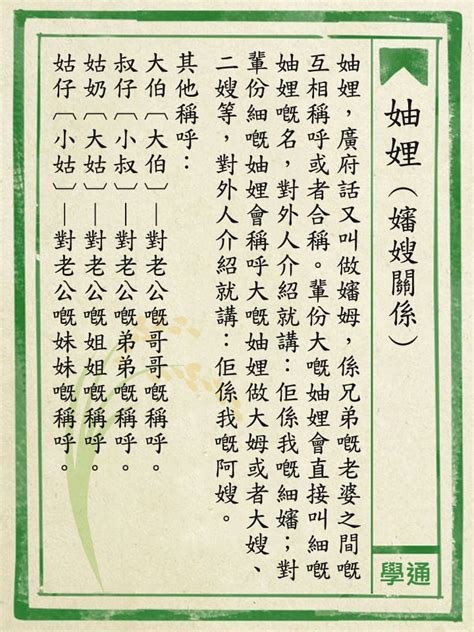 妯娌（嬸嫂關係）
妯娌，廣府話又叫做嬸姆，係兄弟嘅老婆之間嘅
互相稱呼或者合稱。輩份大嘅妯娌會直接叫細嘅
妯娌嘅名，對外人介紹就講：佢係我嘅細嬸；對
輩份細嘅妯娌會稱呼大嘅妯娌做大姆或者大嫂、
二嫂等，對外人介紹就講：佢係我嘅阿嫂。
其他稱呼：
大伯〔大伯〕—對老公嘅哥哥嘅稱呼。
叔仔〔小叔〕—對老公嘅弟弟嘅稱呼。
姑奶〔大姑〕—對老公嘅姐姐嘅稱呼。
姑仔〔小姑〕—對老公嘅妹妹嘅稱呼。
學通